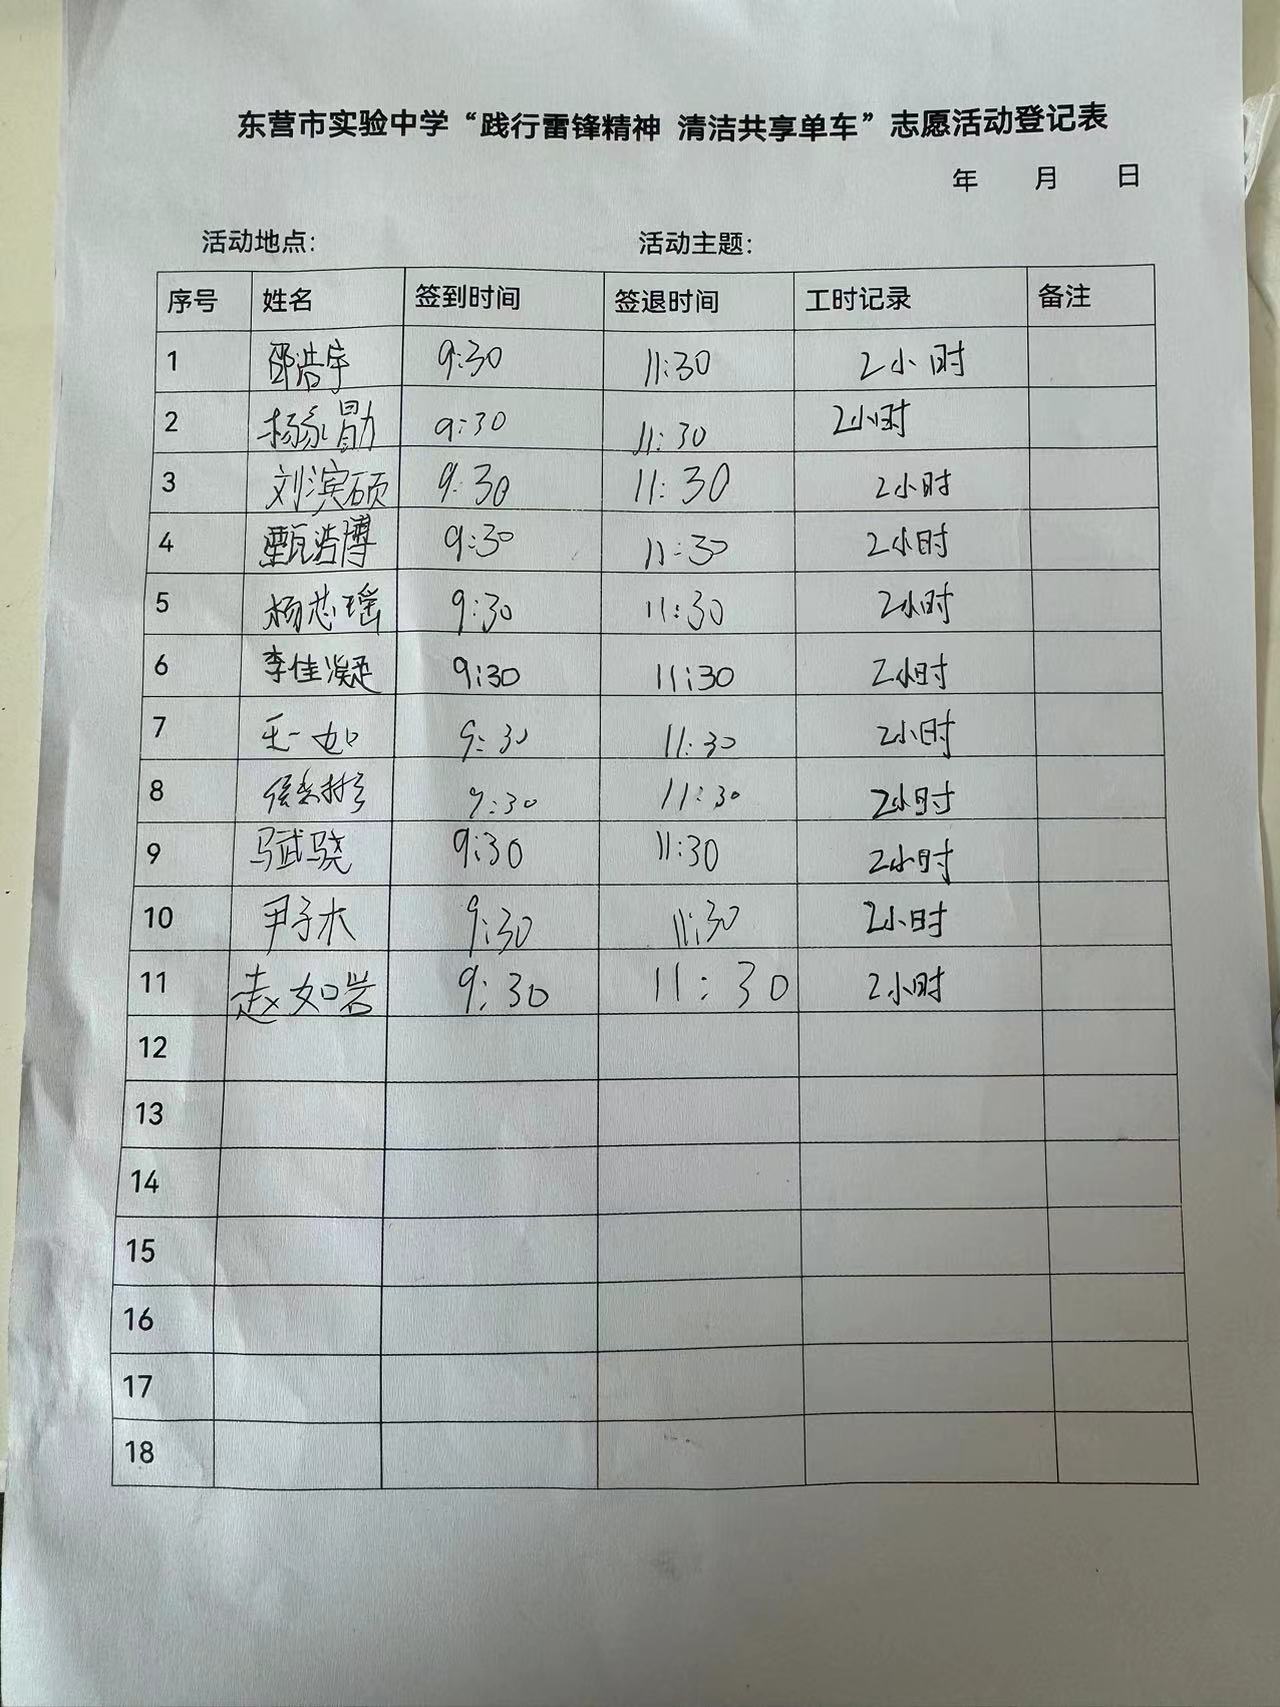 东营市实验中学“践行雷锋精神 清洁共享单车”志愿活动登记表
年 月 日
活动地点： 活动主题：
序号 姓名 签到时间 签退时间 工时记录 备注
1 邵浩宇 9:30 11:30 2小时
2 杨永勖 9:30 11:30 2小时
3 刘滨硕 9:30 11:30 2小时
4 甄浩博 9:30 11:30 2小时
5 杨芯瑶 9:30 11:30 2小时
6 李佳凝 9:30 11:30 2小时
7 王一如 9:30 11:30 2小时
8 9:30 11:30 2小时
9 马斌骁 9:30 11:30 2小时
10 尹子木 9:30 11:30 2小时
11 赵如岩 9:30 11:30 2小时
12
13
14
15
16
17
18